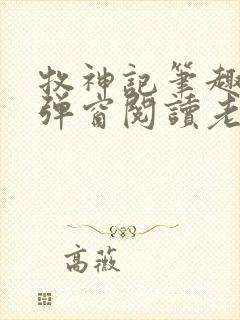 牧神記筆趣
弹窗閱讀老
高薇